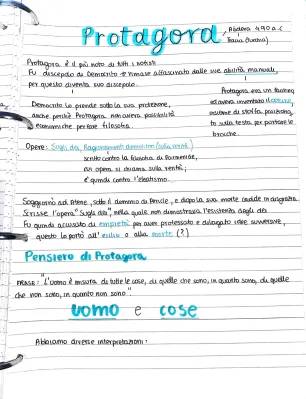 Protagora
Abdera 490 a.C
Protagora è il più noto di tutti i sofisti
Fu discepolo di Democrito e rimase affascinato dalle sue abilità manuali,
per questo diventa suo discepolo.
Protagora era un
ed aveva inventato il
Democrito lo prende sotto la sua protezione,
anche perchè Protagora non aveva possibilità
economiche per fare filosofia.
sulla testa per portare le
brocche.
Opere: Sugli dèi, Ragionamenti demolitori (sulla verità)
scritto contro la filosofia di Parmenide,
un'opera si chiama sulla verità;
è quindi contro l'eleatismo.
Soggiornò ad Atene, sotto il dominio di Pericle, e dopo la sua morte cadde in disgrazia
Scrisse l'opera "Sugli dèi" nella quale non dimostrava l'esistenza degli dei
Fu quindi accusato di empietà per aver professato e divulgato idee sovversive,
questo lo portò all'esilio o alla morte (?)
Pensiero di Protagora
FRASE: "L'uomo è misura di tutte le cose, di quelle che sono, in quanto sono, di quelle
che non sono, in quanto non sono".
uomo e cose
Abbiamo diverse interpretazioni: